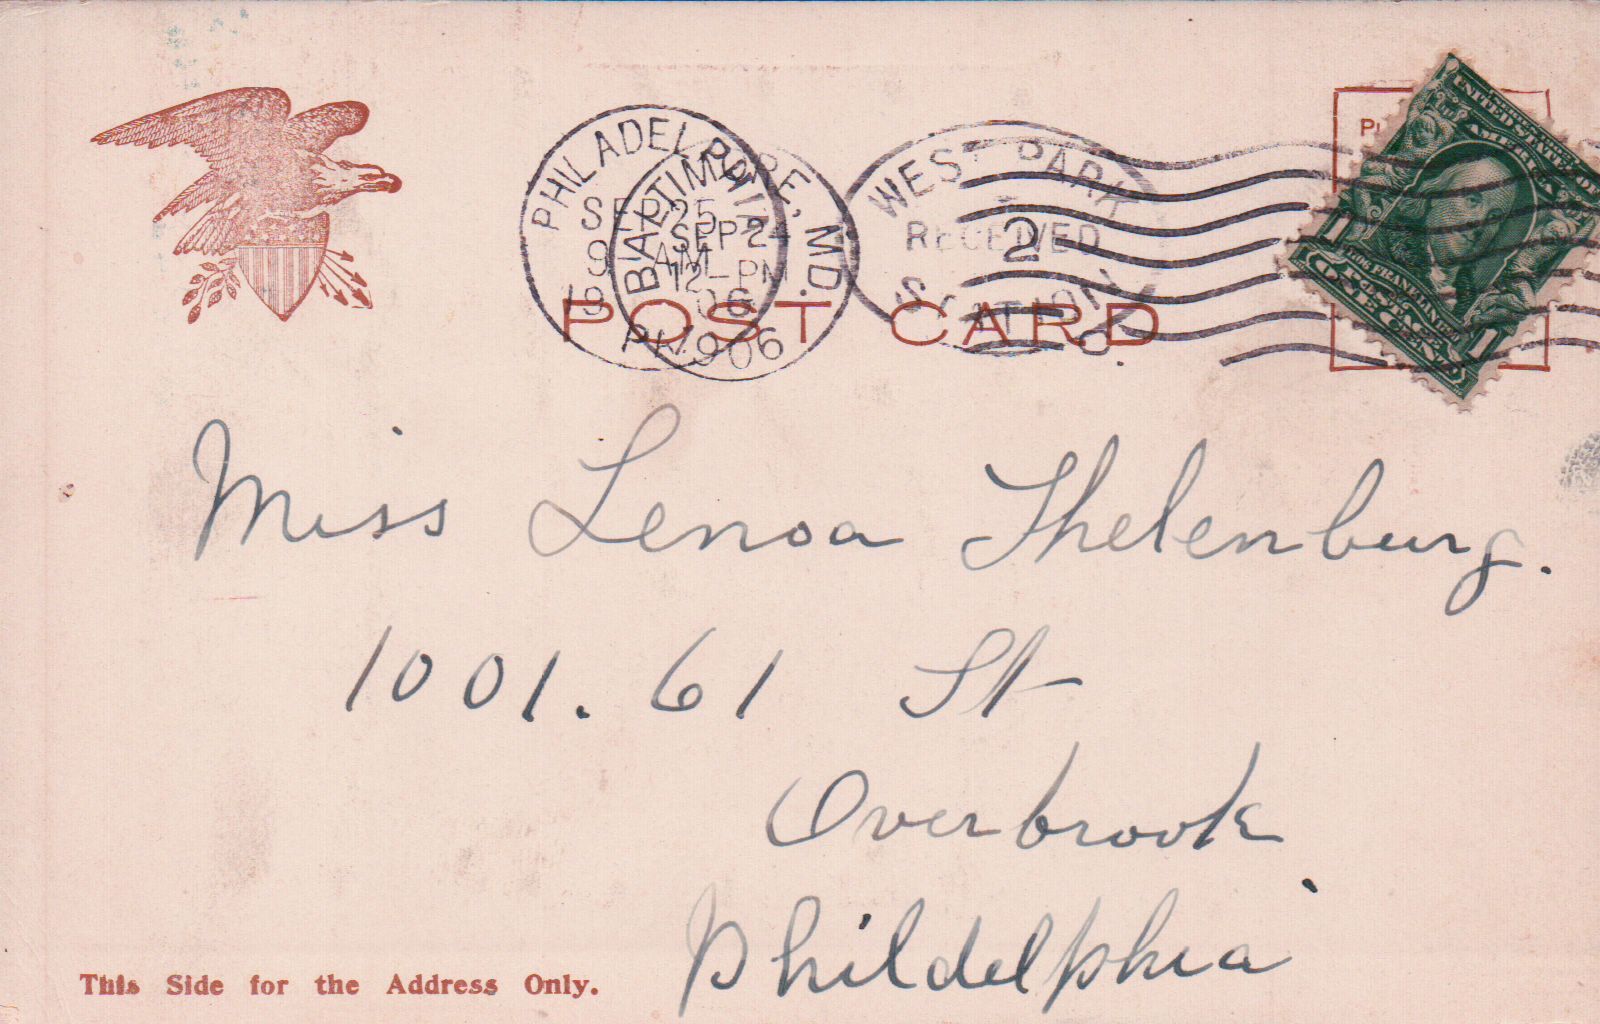 PHILADELPHIA
SEP 25
9 AM
1906
PA.
BALTIMORE, MD.
SEP 24
12 - PM
1906
WEST PARK
RECEIVED
2
STATION
POST CARD
UNITED STATES OF AMERICA
1706 FRANKLIN 1790
1 ONE CENT 1
Miss Lenoa Thelenburg.
1001. 61 St
Overbrook
Phildelphia
This Side for the Address Only.